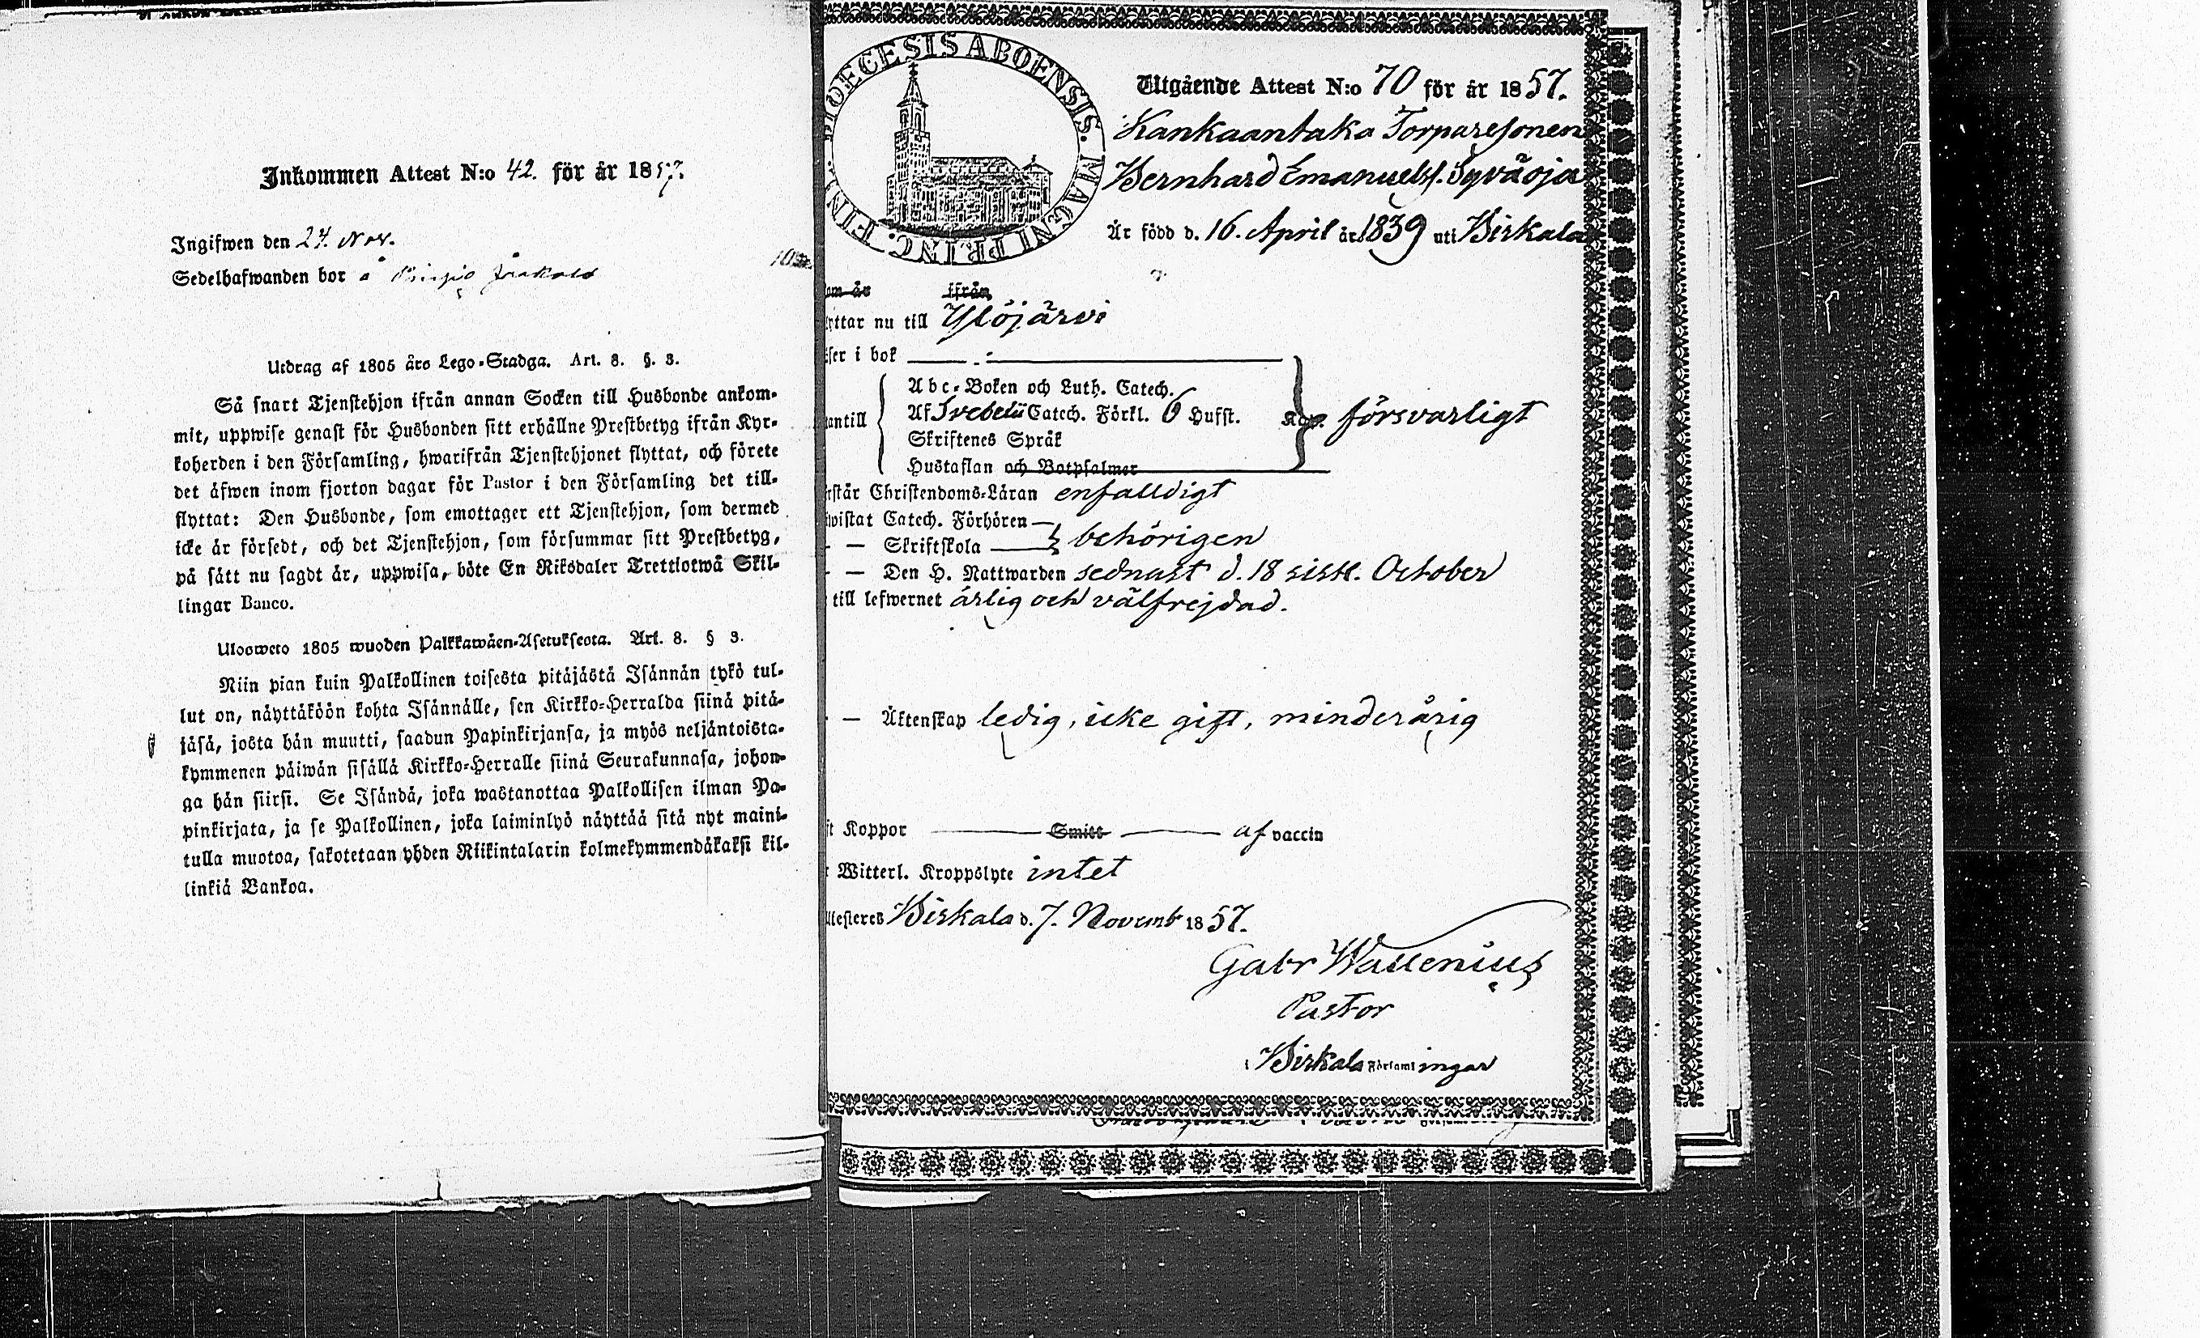 Inkommen Attest N:o 42. för år 1857.
Ingifwen den 24. Nov.
Sedelhafwanden bor å
Utdrag af 1805 års Lego-Stadga. Art. 8. §. 3.
Så snart Tjenstehjon ifrån annan Socken till Husbonde ankom-
mit, uppwise genast för Husbonden sitt erhållne Prestbetyg ifrån Kyr-
koherden i den Församling, hwarifrån Tjenstehjonet flyttat, och förete
det äfwen inom fjorton dagar för Pastor i den Församling det till-
flyttat: Den Husbonde, som emottager ett Tjenstehjon, som dermed
icke är försedt, och det Tjenstehjon, som försummar sitt Prestbetyg,
på sätt nu sagdt är, uppwisa, böte En Riksdaler Trettiotwå Skil-
lingar Banco.
Ulosweto 1805 wuoden Palkkawäen-Asetuksesta. Art. 8. § 3.
Niin pian kuin Palkollinen toisesta pitäjästä Isännän tykö tul-
lut on, näyttäköön kohta Isännälle, sen Kirkko-Herralda siinä pitä-
jäsä, josta hän muutti, saadun Papinkirjansa, ja myös neljäntoista-
kymmenen päiwän sisällä Kirkko-Herralle siinä Seurakunnasa, johon-
ga hän siirsi. Se Isändä, joka wastanottaa Palkollisen ilman Pa-
pinkirjata, ja se Palkollinen, joka laiminlyö näyttää sitä nyt maini-
tulla muotoa, sakotetaan yhden Riikintalarin kolmekymmendäkaksi kil-
linkiä Bankoa.
DIOECESIS ABOENSIS. MAGNI PRINC. FINL.
Utgående Attest N:o 70 för år 1857.
Kankaantaka Torparesonen
Bernhard Emanuelss. Syväoja
Är född d. 16. April år 1839 uti Birkala
om är ifrån
yttar nu till Ylöjärvi
äser i bok
antill
Abc-Boken och Luth. Catech.
Af Svebelii Catech. Förkl. 6 Hufst.
Skriftenes Språk
Hustaflan och Botpsalmer
försvarligt
rstår Christendoms-Läran enfalldigt
wistat Catech. Förhören
— Skriftskola behörigen
— Den H. Nattwarden sednast d. 18 sistl. October
till lefwernet ärlig och välfrejdad.
— Äktenskap ledig, icke gift, minderårig
ft Koppor Smitt af vaccin
r Witterl. Kroppslyte intet
ttesteres Birkala d. 7. Novemb 1857.
Gabr Wallenius
Pastor
i Birkala Församl ingar